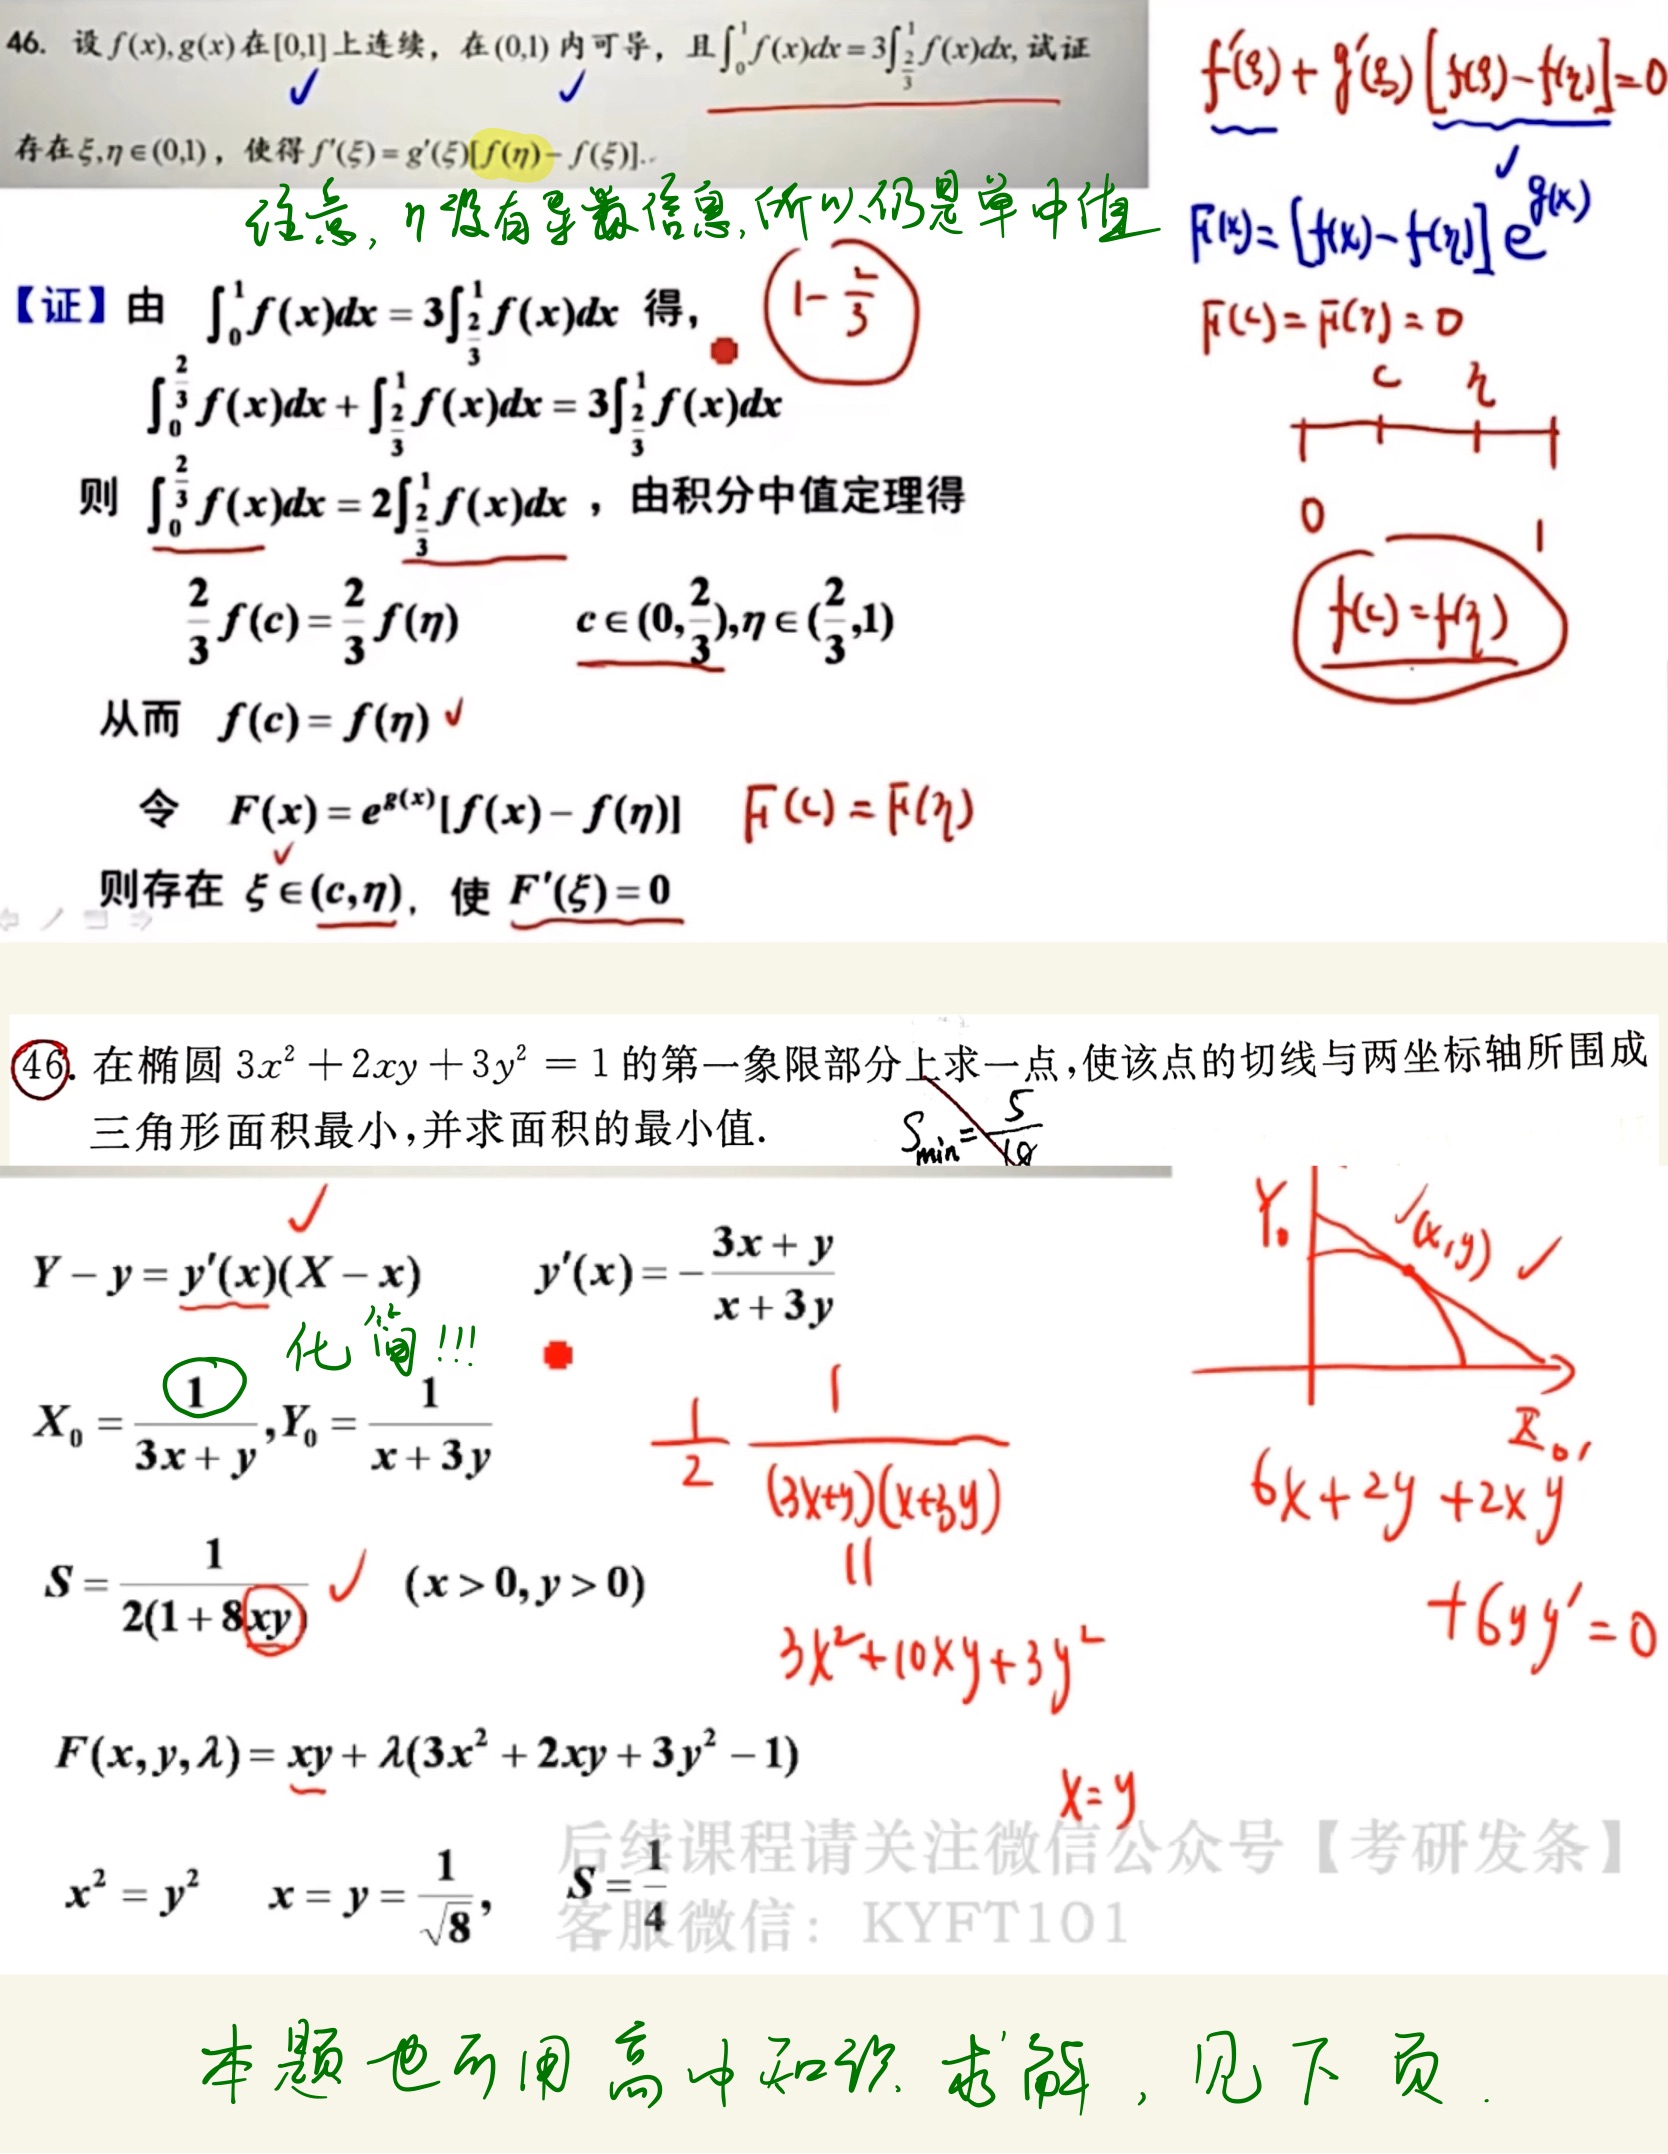 46. 设 f(x), g(x) 在 [0,1] 上连续，在 (0,1) 内可导，且 ∫₀¹ f(x)dx = 3∫_{2/3}^1 f(x)dx, 试证
存在 ξ, η ∈ (0,1)，使得 f′(ξ) = g′(ξ)[f(η) − f(ξ)].
f′(ξ) + g′(ξ) [f(ξ) − f(η)] = 0
注意, η没有导数信息, 所以仍是单中值
F(x) = [f(x) − f(η)] e^{g(x)}
【证】由 ∫₀¹ f(x)dx = 3∫_{2/3}^1 f(x)dx 得，
1 − 2/3
F(c) = F(η) = 0
∫_0^{2/3} f(x)dx + ∫_{2/3}^1 f(x)dx = 3∫_{2/3}^1 f(x)dx
c η
则 ∫_0^{2/3} f(x)dx = 2∫_{2/3}^1 f(x)dx ，由积分中值定理得
0 1
2/3 f(c) = 2/3 f(η) c ∈ (0, 2/3), η ∈ (2/3, 1)
f(c) = f(η)
从而 f(c) = f(η)
令 F(x) = e^{g(x)}[f(x) − f(η)] F(c) = F(η)
则存在 ξ ∈ (c, η)，使 F′(ξ) = 0
46. 在椭圆 3x² + 2xy + 3y² = 1 的第一象限部分上求一点,使该点的切线与两坐标轴所围成
三角形面积最小,并求面积的最小值.
Y − y = y′(x)(X − x) y′(x) = −(3x + y)/(x + 3y)
Y₀ (x, y)
化简!!!
X₀ = 1/(3x + y), Y₀ = 1/(x + 3y)
1/2 1/((3x+y)(x+3y))
X₀
6x + 2y + 2xy′
S = 1/(2(1 + 8xy)) (x > 0, y > 0)
||
+ 6yy′ = 0
3x² + 10xy + 3y²
F(x, y, λ) = xy + λ(3x² + 2xy + 3y² − 1)
x = y
后续课程请关注微信公众号【考研发条】
x² = y² x = y = 1/√8, S = 1/4
客服微信：KYFT101
本题也可用高中知识求解, 见下页.